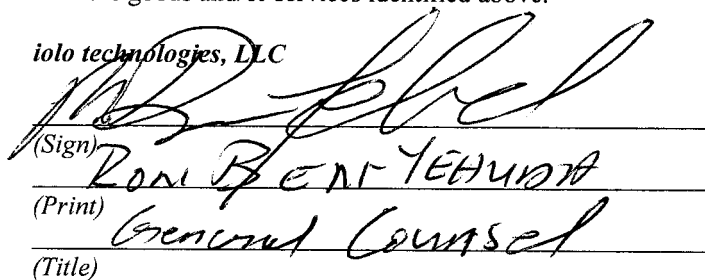 goods and/or services identified above.
iolo technologies, LLC
(Sign)
RON BEN YEHUDA
(Print)
General Counsel
(Title)